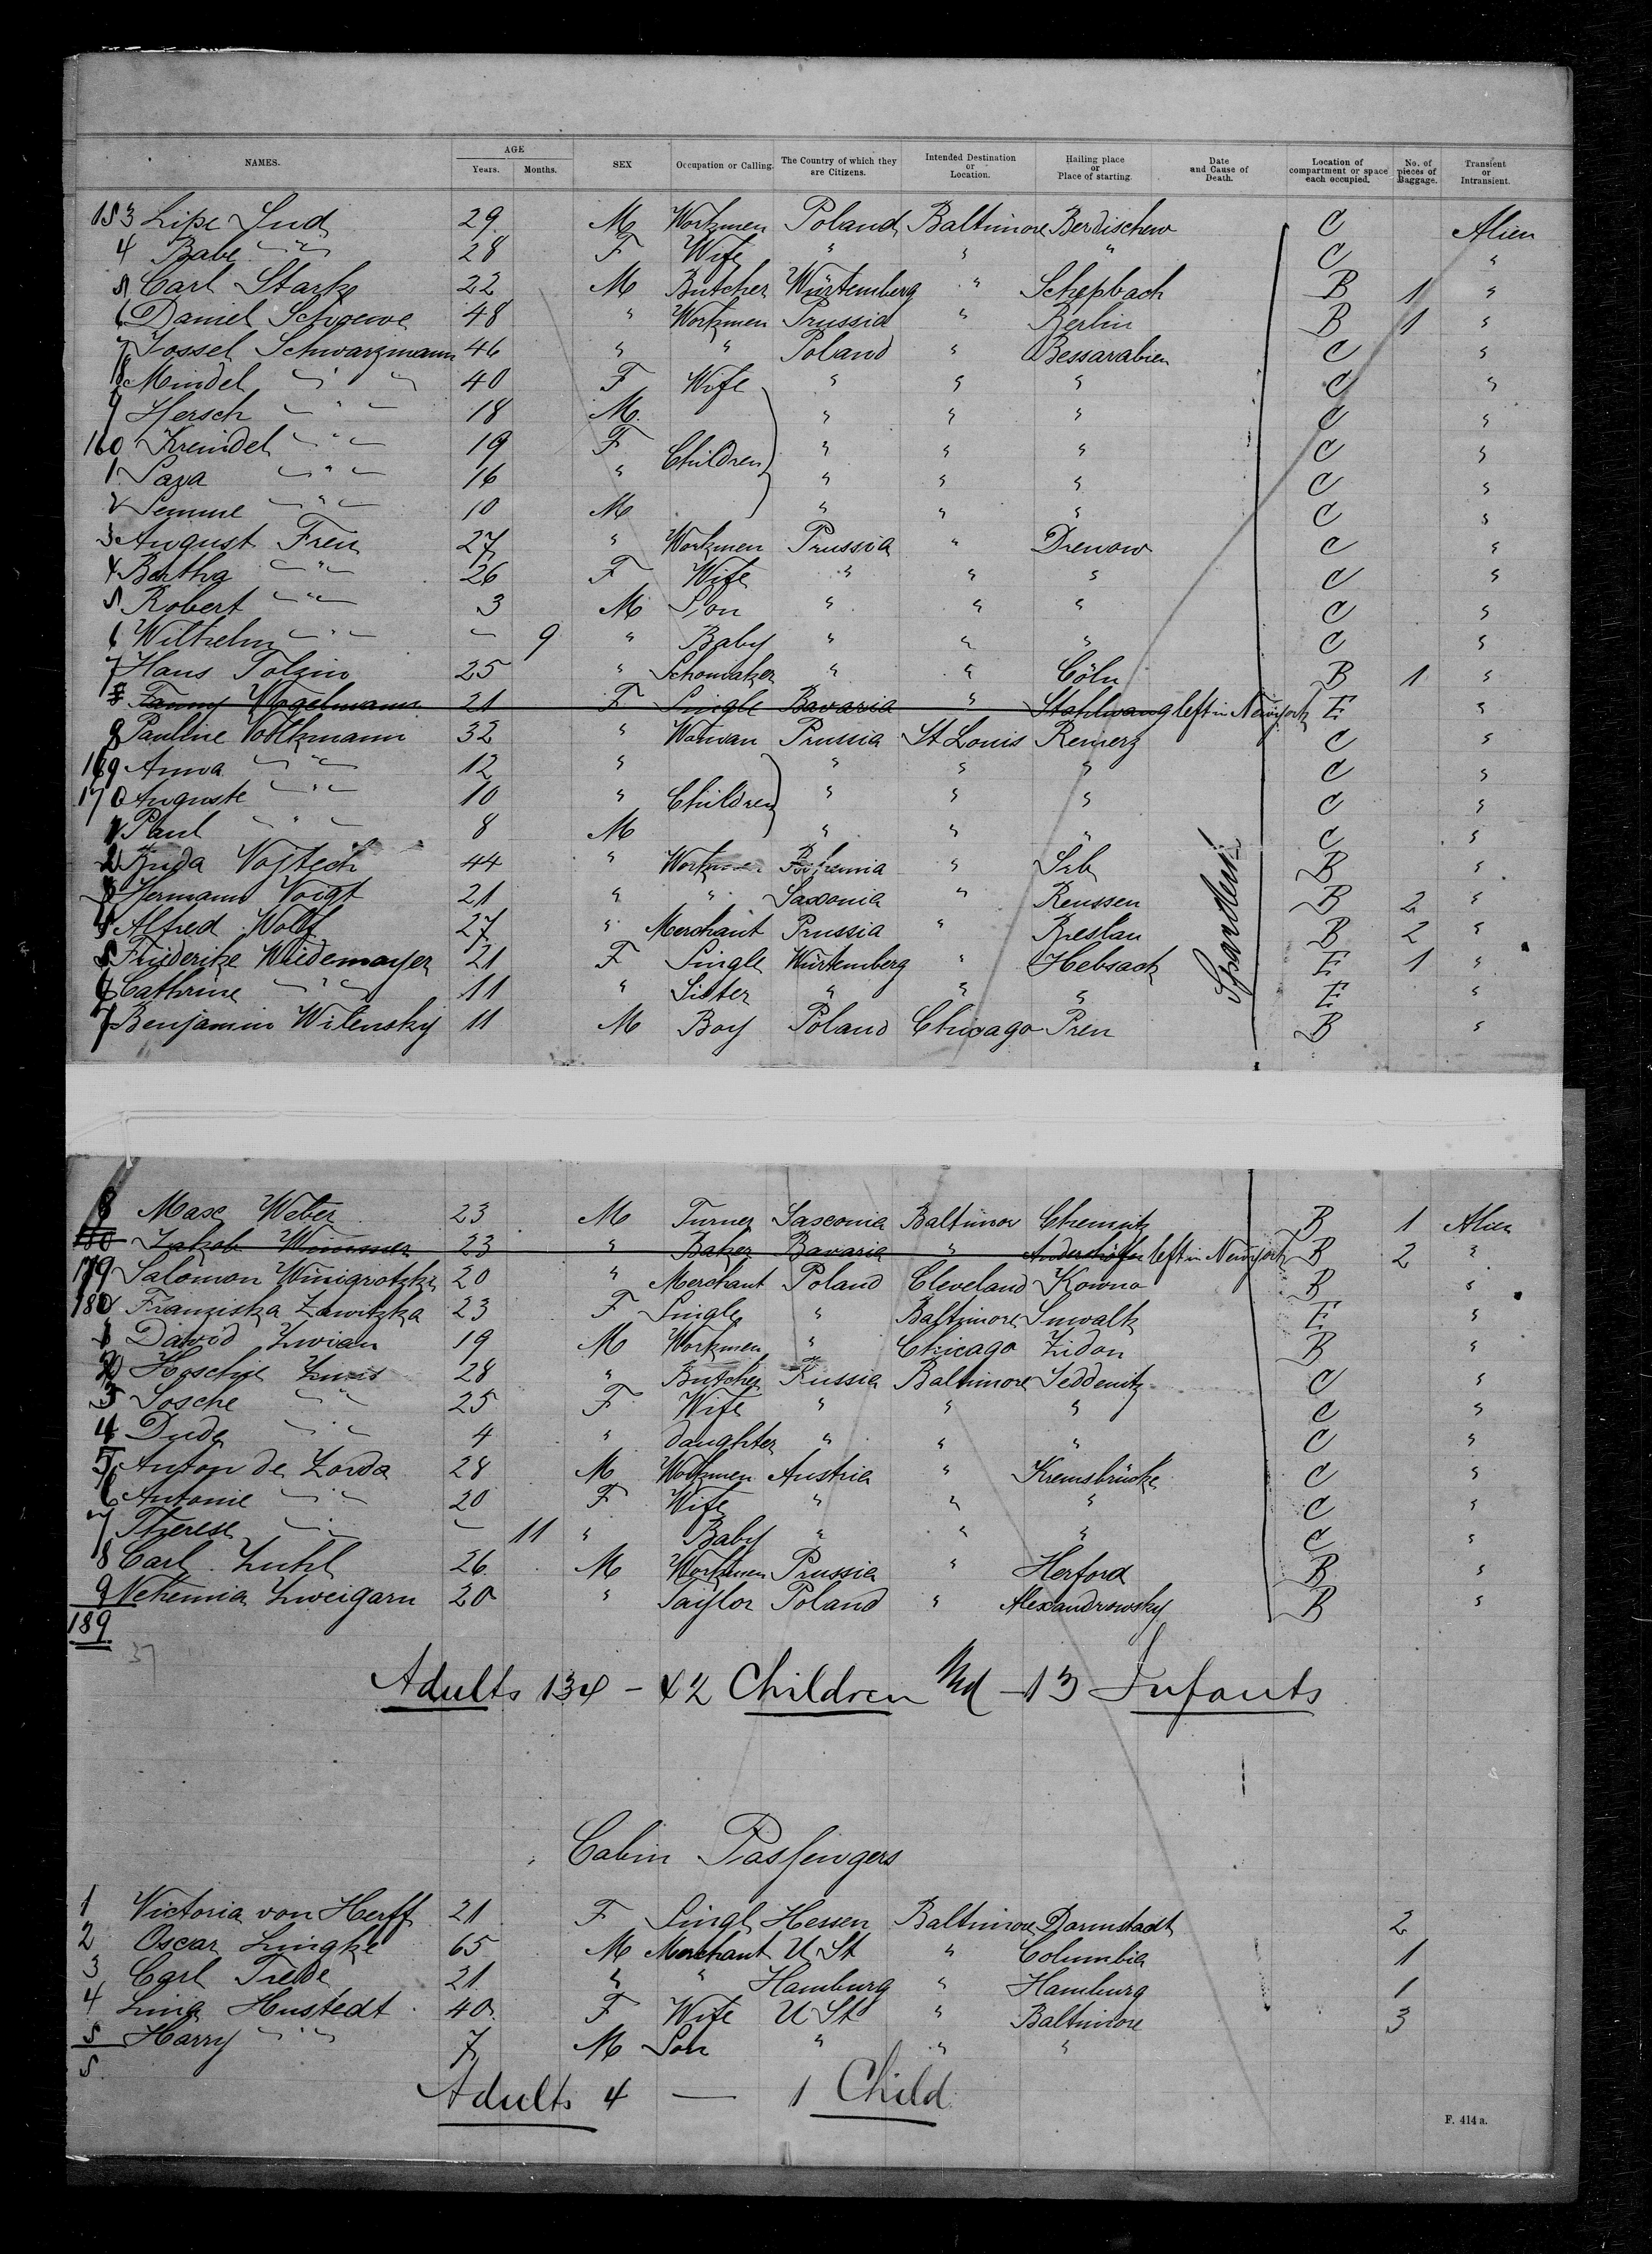 NAMES. AGE Years. Months. SEX Occupation or Calling. The Country of which they are Citizens. Intended Destination or Location. Hailing place or Place of starting. Date and Cause of Death. Location of compartment or space each occupied. No. of pieces of Baggage. Transient or Intransient.
153 Lipe Jud 29 M Workmen Poland Baltimore Berdischew C Alien
4 Babe " 28 F Wife " " " C "
5 Carl Starke 22 M Butcher Würtemberg " Schepbach B 1 "
6 Daniel Schoewe 48 " Workmen Prussia " Berlin B 1 "
7 Jossel Schwarzmann 46 " " Poland " Bessarabien C "
8 Mindel " " 40 F Wife " " " C "
9 Hersch " 18 M " " " C "
160 Kreindel " 19 F Children " " " C "
1 Sara " 16 " " " " C "
2 Semme " 10 M " " " C "
3 August Freu 27 " Workmen Prussia " Drenow C "
4 Bertha " 26 F Wife " " " C "
5 Robert " 3 M Son " " " C "
6 Wilhelm " - 9 " Baby " " " C "
7 Hans Tolzin 25 " Schomaker " " Cöln B 1 "
8 Fanny Wogelmann 21 F Single Bavaria " Stahlwang left in Newyork E "
8 Pauline Volkmann 32 " Woman Prussia St Louis Remerz C "
169 Anna " 12 " " " " C "
170 Auguste " 10 " Children " " " C "
1 Paul " 8 M " " " C "
2 Vojtech 44 " Workmen Bohemia " Srb B "
3 Hermann Voigt 21 " " Saxonia " Reussen B 2 "
4 Alfred Wolff 27 " Merchant Prussia " Breslau B 2 "
5 Friederike Wiedemayer 21 F Single Würtemberg " Hebsack E 1 "
6 Cathrine " 11 " Sister " " " E "
7 Benjamin Wilensky 11 M Boy Poland Chicago Pren B "
8 Max Weber 23 M Turner Saxonia Baltimor Chemnitz B 1 Alien
180 Jakob Wimmer 23 " Baker Bavaria " left in Newyork B 2 "
179 Salomon Winigrotzki 20 " Merchant Poland Cleveland Kowno B "
180 Franziska Zawitzka 23 F Single " Baltimore Suwalk E "
1 David Zwian 19 M Workmen " Chicago Zidon B "
2 Hoschie 28 " Butcher Russia Baltimore Jeddenitz C "
3 Sosche " 25 F Wife " " " C "
4 Dude " 4 " daughter " " " C "
5 Anton de Zorda 28 M Workmen Austria " Kremsbrücke C "
6 Antonie " 20 F Wife " " " C "
7 Therese " - 11 " Baby " " " C "
8 Carl Zuhl 26 M Workmen Prussia " Herford B "
9 Nehemia Zweigarn 20 " Taylor Poland " Alexandrowsky B "
189
37
Adults 134 - 42 Children Und - 13 Infants
Cabin Passengers
1 Victoria von Herff 21 F Singl Hessen Baltimore Darmstadt 2
2 Oscar Lingke 65 M Merchant U St " Columbia 1
3 Carl Trede 21 " " Hamburg " Hamburg 1
4 Lina Hustedt 40 F Wife U St " Baltimore 3
5 Harry " 7 M Son " " "
5
Adults 4 — 1 Child
F. 414 a.